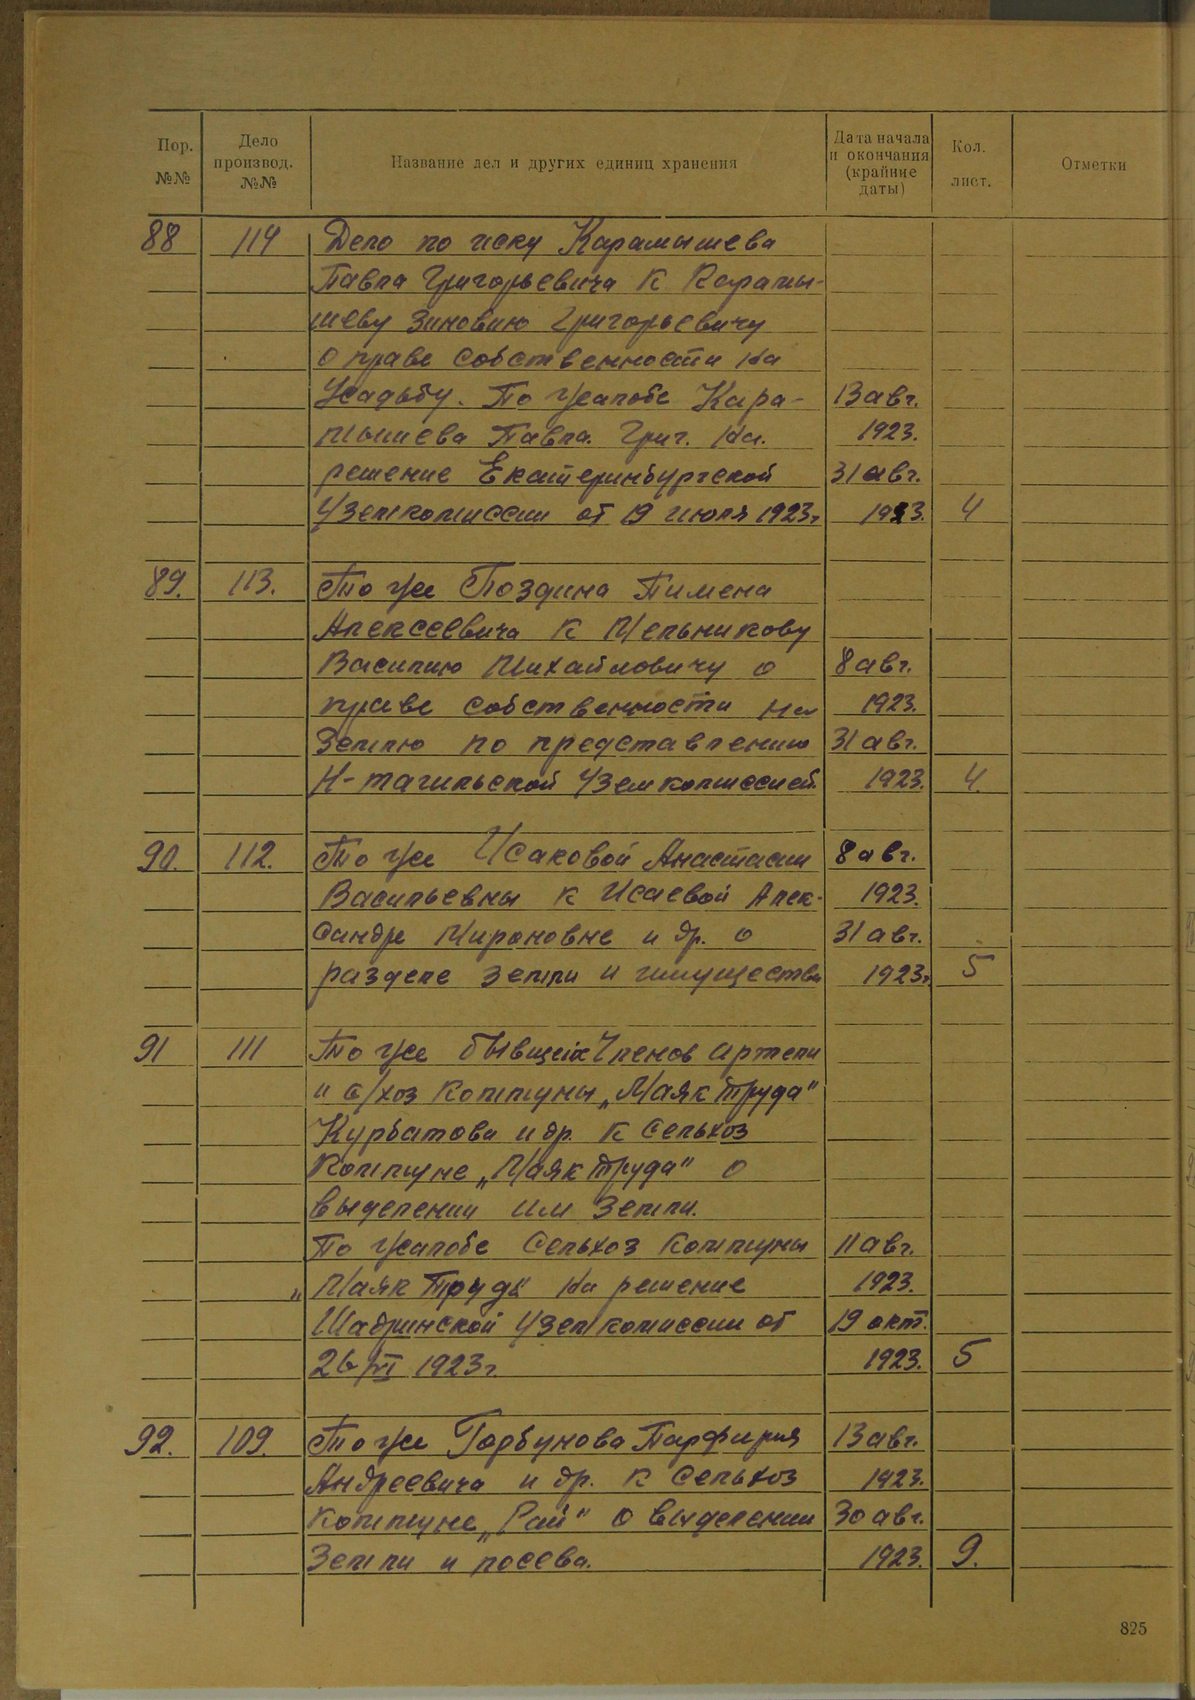 Пор. №№ Дело производ. №№ Название дел и других единиц хранения Дата начала и окончания (крайние даты) Кол. лист. Отметки
88 114 Дело по иску Карамышева
Павла Григорьевича к Карамы-
шеву Зиновию Григорьевичу
о праве собственности на
усадьбу. По жалобе Кара- 13 авг.
мышева Павла Григ. на 1923.
решение Екатеринбургской 31 авг.
Уземкомиссии от 19 июля 1923г 1923. 4
89. 113. То же Поздина Пимена
Алексеевича к Мельникову
Василию Михайловичу о 8 авг.
праве собственности на 1923.
землю по представлению 31 авг.
Н-тагильской Уземкомиссией 1923. 4.
90. 112. То же Исаковой Анастасии 8 авг.
Васильевны к Исаевой Алек- 1923.
сандре Мироновне и др. о 31 авг.
разделе земли и имущества 1923г. 5
91 111 То же бывших членов артели
и с/хоз коммуны „Маяк труда"
Курбатова и др. к сельхоз
коммуне „Маяк труда" о
выделении им земли.
По жалобе сельхоз коммуны 11 авг.
„Маяк труда" на решение 1923.
Шадринской Уземкомиссии от 19 окт.
26/VI 1923г. 1923. 5
92. 109. То же Горбунова Парфирия 13 авг.
Андреевича и др. к сельхоз 1923.
коммуне „Рай" о выделении 30 авг.
земли и посева. 1923. 9.
825